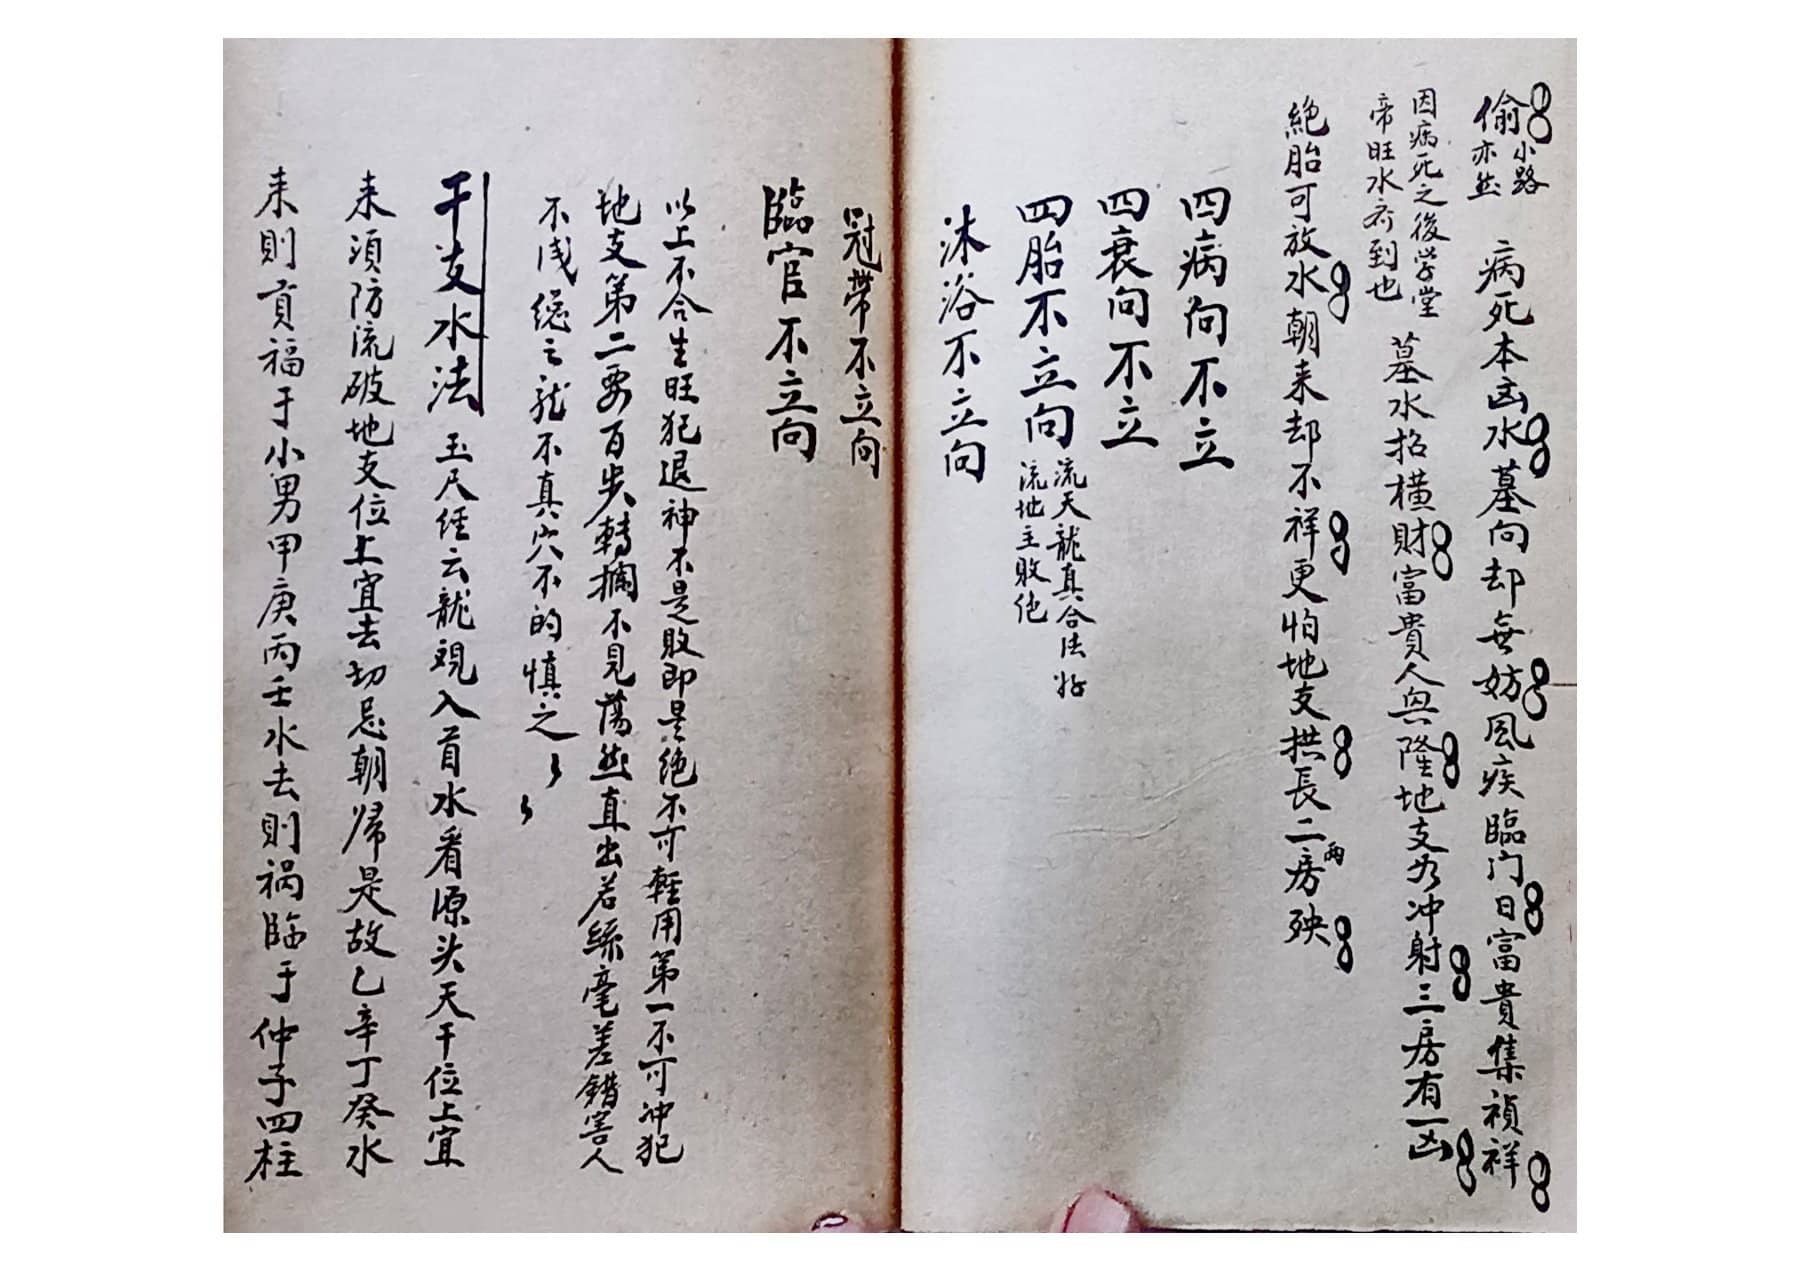 偷 小路亦然 病死本凶水墓向却無妨風疾臨门日富貴集禎祥
因病死之後学堂帝旺水齐到也 墓水招横財富貴人興隆地支为冲射三房有一凶
絶胎可放水朝来却不祥更怕地支拱長二两房殃
四病向不立
四衰向不立
四胎不立向 流天龍真合法好流地主敗绝
沐浴不立向
冠帯不立向
臨官不立向
以上不合生旺犯退神不是敗即是绝不可輕用第一不可冲犯
地支第二要百步轉摑不見蕩然直出若絲毫差錯害人
不浅總之龍不真穴不的慎之
干支水法 玉尺经云龍覌入首水看源头天干位上宜
来須防流破地支位上宜去切忌朝歸是故乙辛丁癸水
来則貢福于小男甲庚丙壬水去則祸臨于仲子四柱